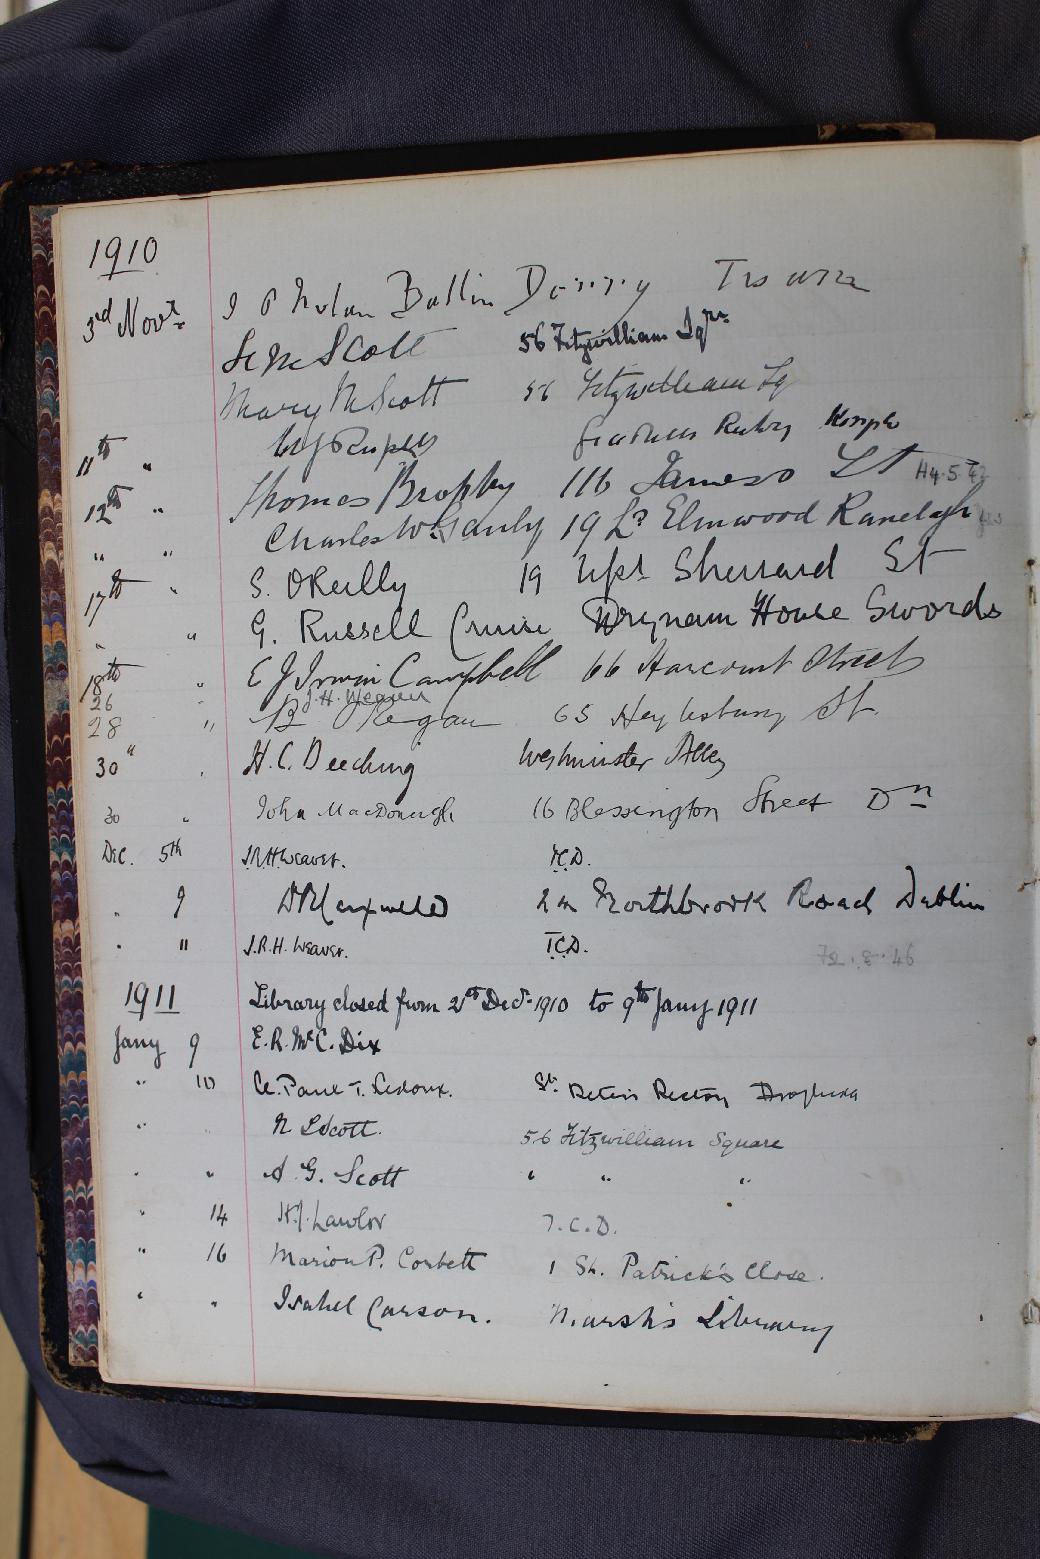 1910
3rd Novr. J P Nolan Ballin Derry
Scott 56 Fitzwilliam Sqre
Mary M Scott 56 Fitzwilliam Sq
11th "
12th " Thomas Brophy 116 James's St H4.5.42
" " Charles W. Ganly 19 Lr Elmwood Ranelagh
17th " S. O'Reilly 19 Upr Sherrard St
" " G. Russell Cruise Wrenam House Swords
18th " E J Irwin Campbell 66 Harcourt Street
26 " J.H. Weaver
28 " O'Regan 65 Heytesbury St.
30 " H. C. Beeching Westminster Abbey
30 " John MacDonagh 16 Blessington Street Dn
Dec. 5th J.R.H. Weaver. T.C.D.
" 9 D Maxwell 2a Northbrook Road Dublin
" " J.R.H. Weaver. T.C.D. 72.8.46
1911 Library closed from 21st Decr 1910 to 9th Jany 1911
Jany 9 E. R. McC. Dix
" 10 Paul T. Ledoux. St. Peter's Rectory Drogheda
" " N L Scott. 56 Fitzwilliam Square
" " A. G. Scott " " "
" 14 H.J. Lawlor T.C.D.
" 16 Marion P. Corbett 1 St. Patrick's Close.
" " Isabel Carson. Marsh's Library